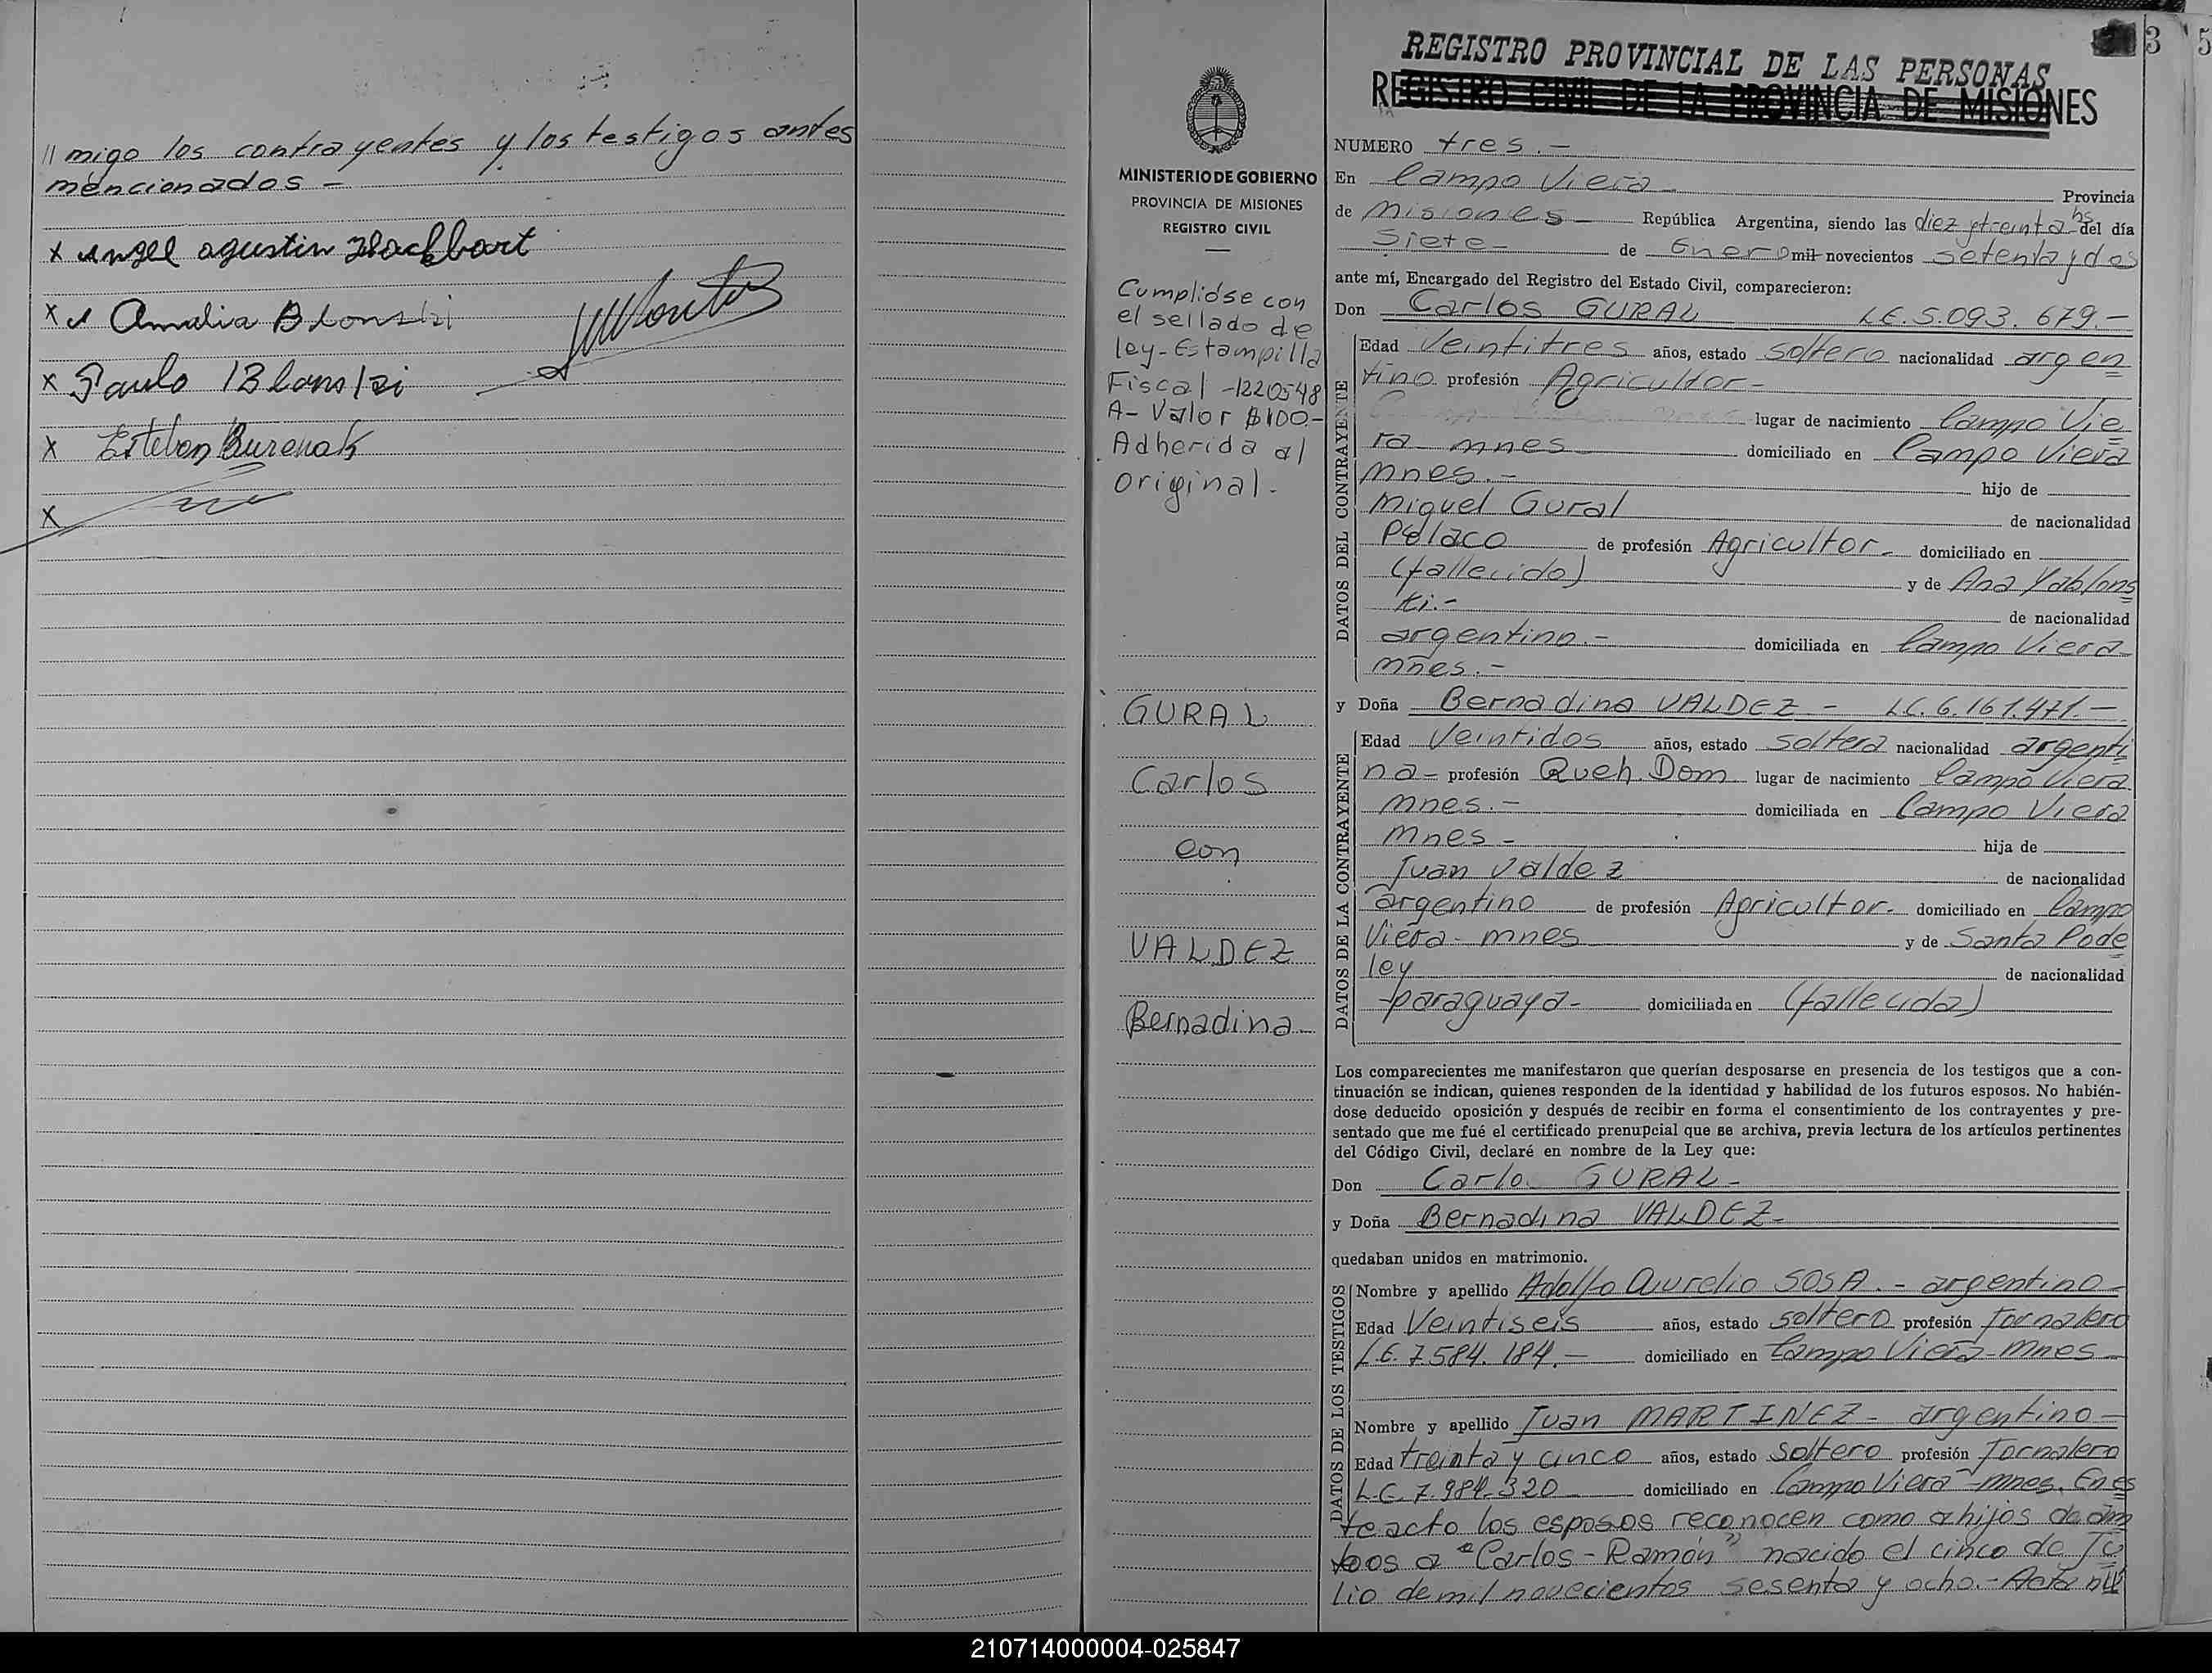 // migo los contrayentes y los testigos antes
mencionados -
x Angel Agustin Hackbart
x Amalia Blonski
x Paulo Blonski
x Esteban Burenak
x
MINISTERIO DE GOBIERNO
PROVINCIA DE MISIONES
REGISTRO CIVIL
Cumplióse con
el sellado de
ley - Estampilla
Fiscal - 1220548
A - Valor $100.-
Adherida al
original.-
GURAL
Carlos
con
VALDEZ
Bernadina
3 5
REGISTRO PROVINCIAL DE LAS PERSONAS
REGISTRO CIVIL DE LA PROVINCIA DE MISIONES
NUMERO tres.-
En Campo Viera - Provincia
de Misiones - República Argentina, siendo las diez y treinta hs del día
Siete - de Enero mil novecientos setenta y dos
ante mí, Encargado del Registro del Estado Civil, comparecieron:
Don Carlos GURAL L.E. 5.093.679.-
DATOS DEL CONTRAYENTE
Edad Veintitres años, estado soltero nacionalidad argen
tino profesión Agricultor -
lugar de nacimiento Campo Vie
ra - mnes domiciliado en Campo Viera
mnes.- hijo de
Miguel Gural de nacionalidad
Polaco de profesión Agricultor - domiciliado en
(fallecido) y de Ana Yablons
ki.- de nacionalidad
argentina.- domiciliada en Campo Viera -
mnes.-
y Doña Bernadina VALDEZ - L.C. 6.161.471.-
DATOS DE LA CONTRAYENTE
Edad Veintidos años, estado soltera nacionalidad argenti
na - profesión Queh. Dom lugar de nacimiento Campo Viera
mnes.- domiciliada en Campo Viera
mnes - hija de
Juan Valdez de nacionalidad
argentino de profesión Agricultor - domiciliado en Campo
Viera - mnes y de Santa Pode
ley de nacionalidad
- paraguaya - domiciliada en (fallecida)
Los comparecientes me manifestaron que querían desposarse en presencia de los testigos que a con-
tinuación se indican, quienes responden de la identidad y habilidad de los futuros esposos. No habién-
dose deducido oposición y después de recibir en forma el consentimiento de los contrayentes y pre-
sentado que me fué el certificado prenupcial que se archiva, previa lectura de los artículos pertinentes
del Código Civil, declaré en nombre de la Ley que:
Don Carlo GURAL -
y Doña Bernadina VALDEZ -
quedaban unidos en matrimonio.
DATOS DE LOS TESTIGOS
Nombre y apellido Adolfo Aurelio SOSA.- argentino -
Edad Veintiseis años, estado soltero profesión Jornalero
L.E. 7.584.184.- domiciliado en Campo Viera - mnes -
Nombre y apellido Juan MARTINEZ - argentino -
Edad treinta y cinco años, estado soltero profesión Jornalero
L.E. 7.984.320 domiciliado en Campo Viera - mnes. En es
te acto los esposos reconocen como a hijos de am
bos a "Carlos - Ramón" nacido el cinco de Ju
lio de mil novecientos sesenta y ocho.- Acta nº
210714000004-025847